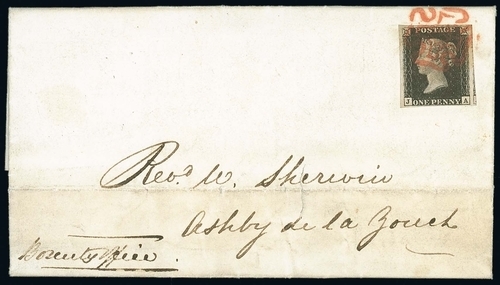 POSTAGE
J A
ONE PENNY
Revd. W. Sherwin
Ashby de la Zouch